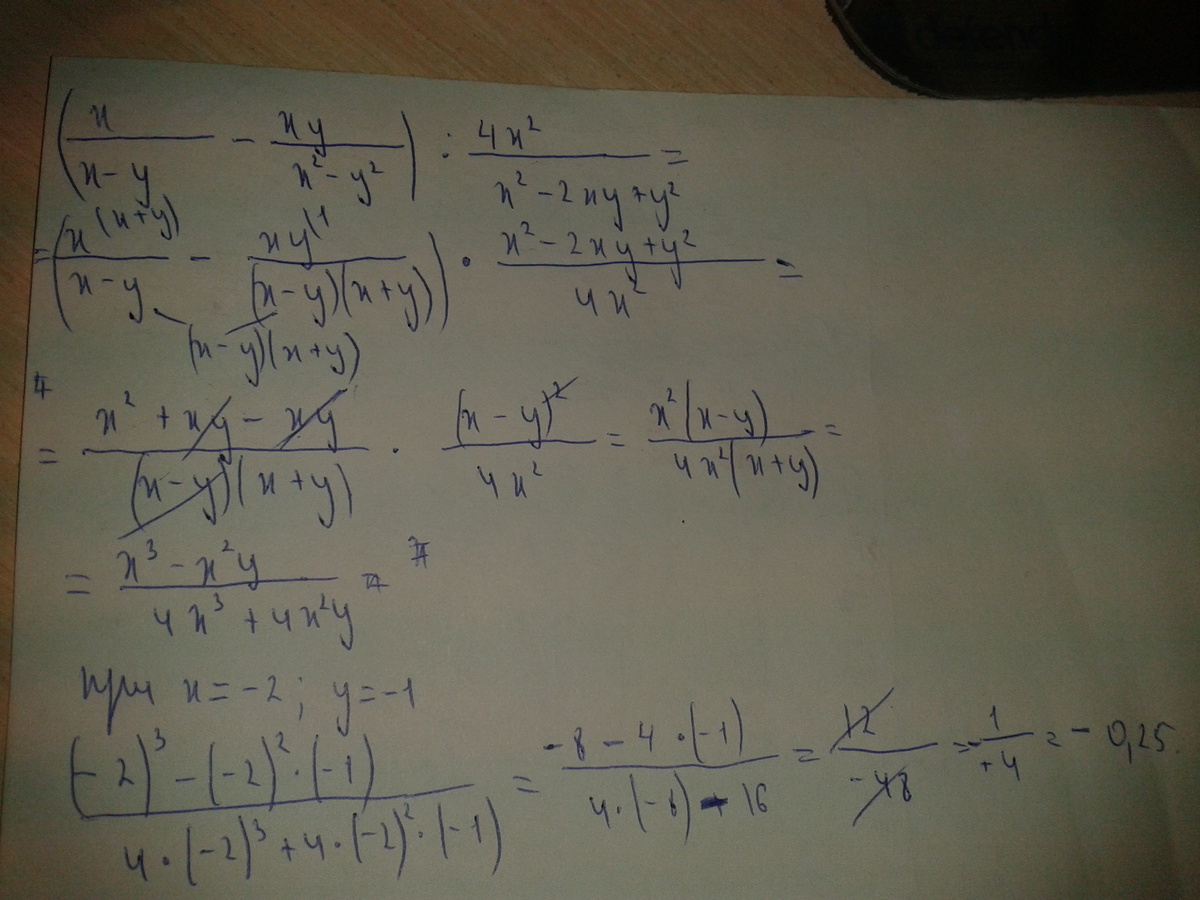 (x/(x-y) - xy/(x²-y²)) : 4x²/(x²-2xy+y²) =
= (x^(x+y)/(x-y) - xy^(1/((x-y)(x+y))) · (x²-2xy+y²)/4x² =
(x-y)(x+y)
= (x²+xy-xy)/((x-y)(x+y)) · (x-y)²/4x² = x²(x-y)/4x²(x+y) =
= (x³-x²y)/(4x³+4x²y)
при x=-2; y=-1
((-2)³-(-2)²·(-1))/(4·(-2)³+4·(-2)²·(-1)) = (-8-4·(-1))/(4·(-8)-16) = 12/-48 = -1/+4 = -0,25.